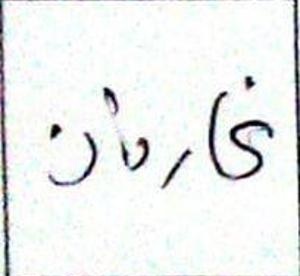 خاروان